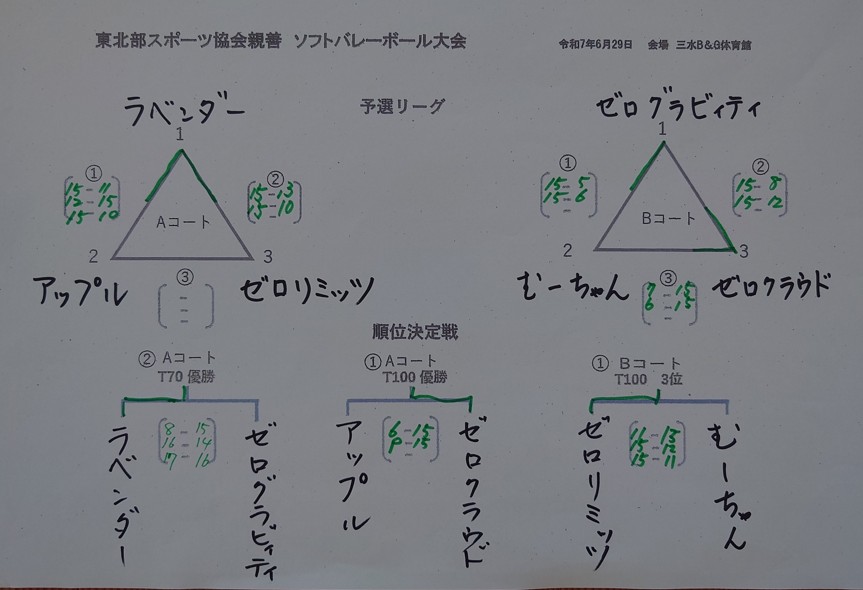 東北部スポーツ協会親善 ソフトバレーボール大会
令和7年6月29日 会場 三水B&G体育館
予選リーグ
ラベンダー
1
①
15-11
12-15
15-10
②
15-13
15-10
Aコート
2
3
アップル
③
-
-
-
ゼロリミッツ
ゼログラビィティ
1
①
15-5
15-6
-
②
15-8
15-12
-
Bコート
2
3
むーちゃん
③
7-15
6-15
-
ゼロクラウド
順位決定戦
② Aコート
T70 優勝
ラベンダー
8-15
16-14
17-16
ゼログラビィティ
① Aコート
T100 優勝
アップル
6-15
-15
-
ゼロクラウド
① Bコート
T100 3位
ゼロリミッツ
-13
15-12
15-11
むーちゃん